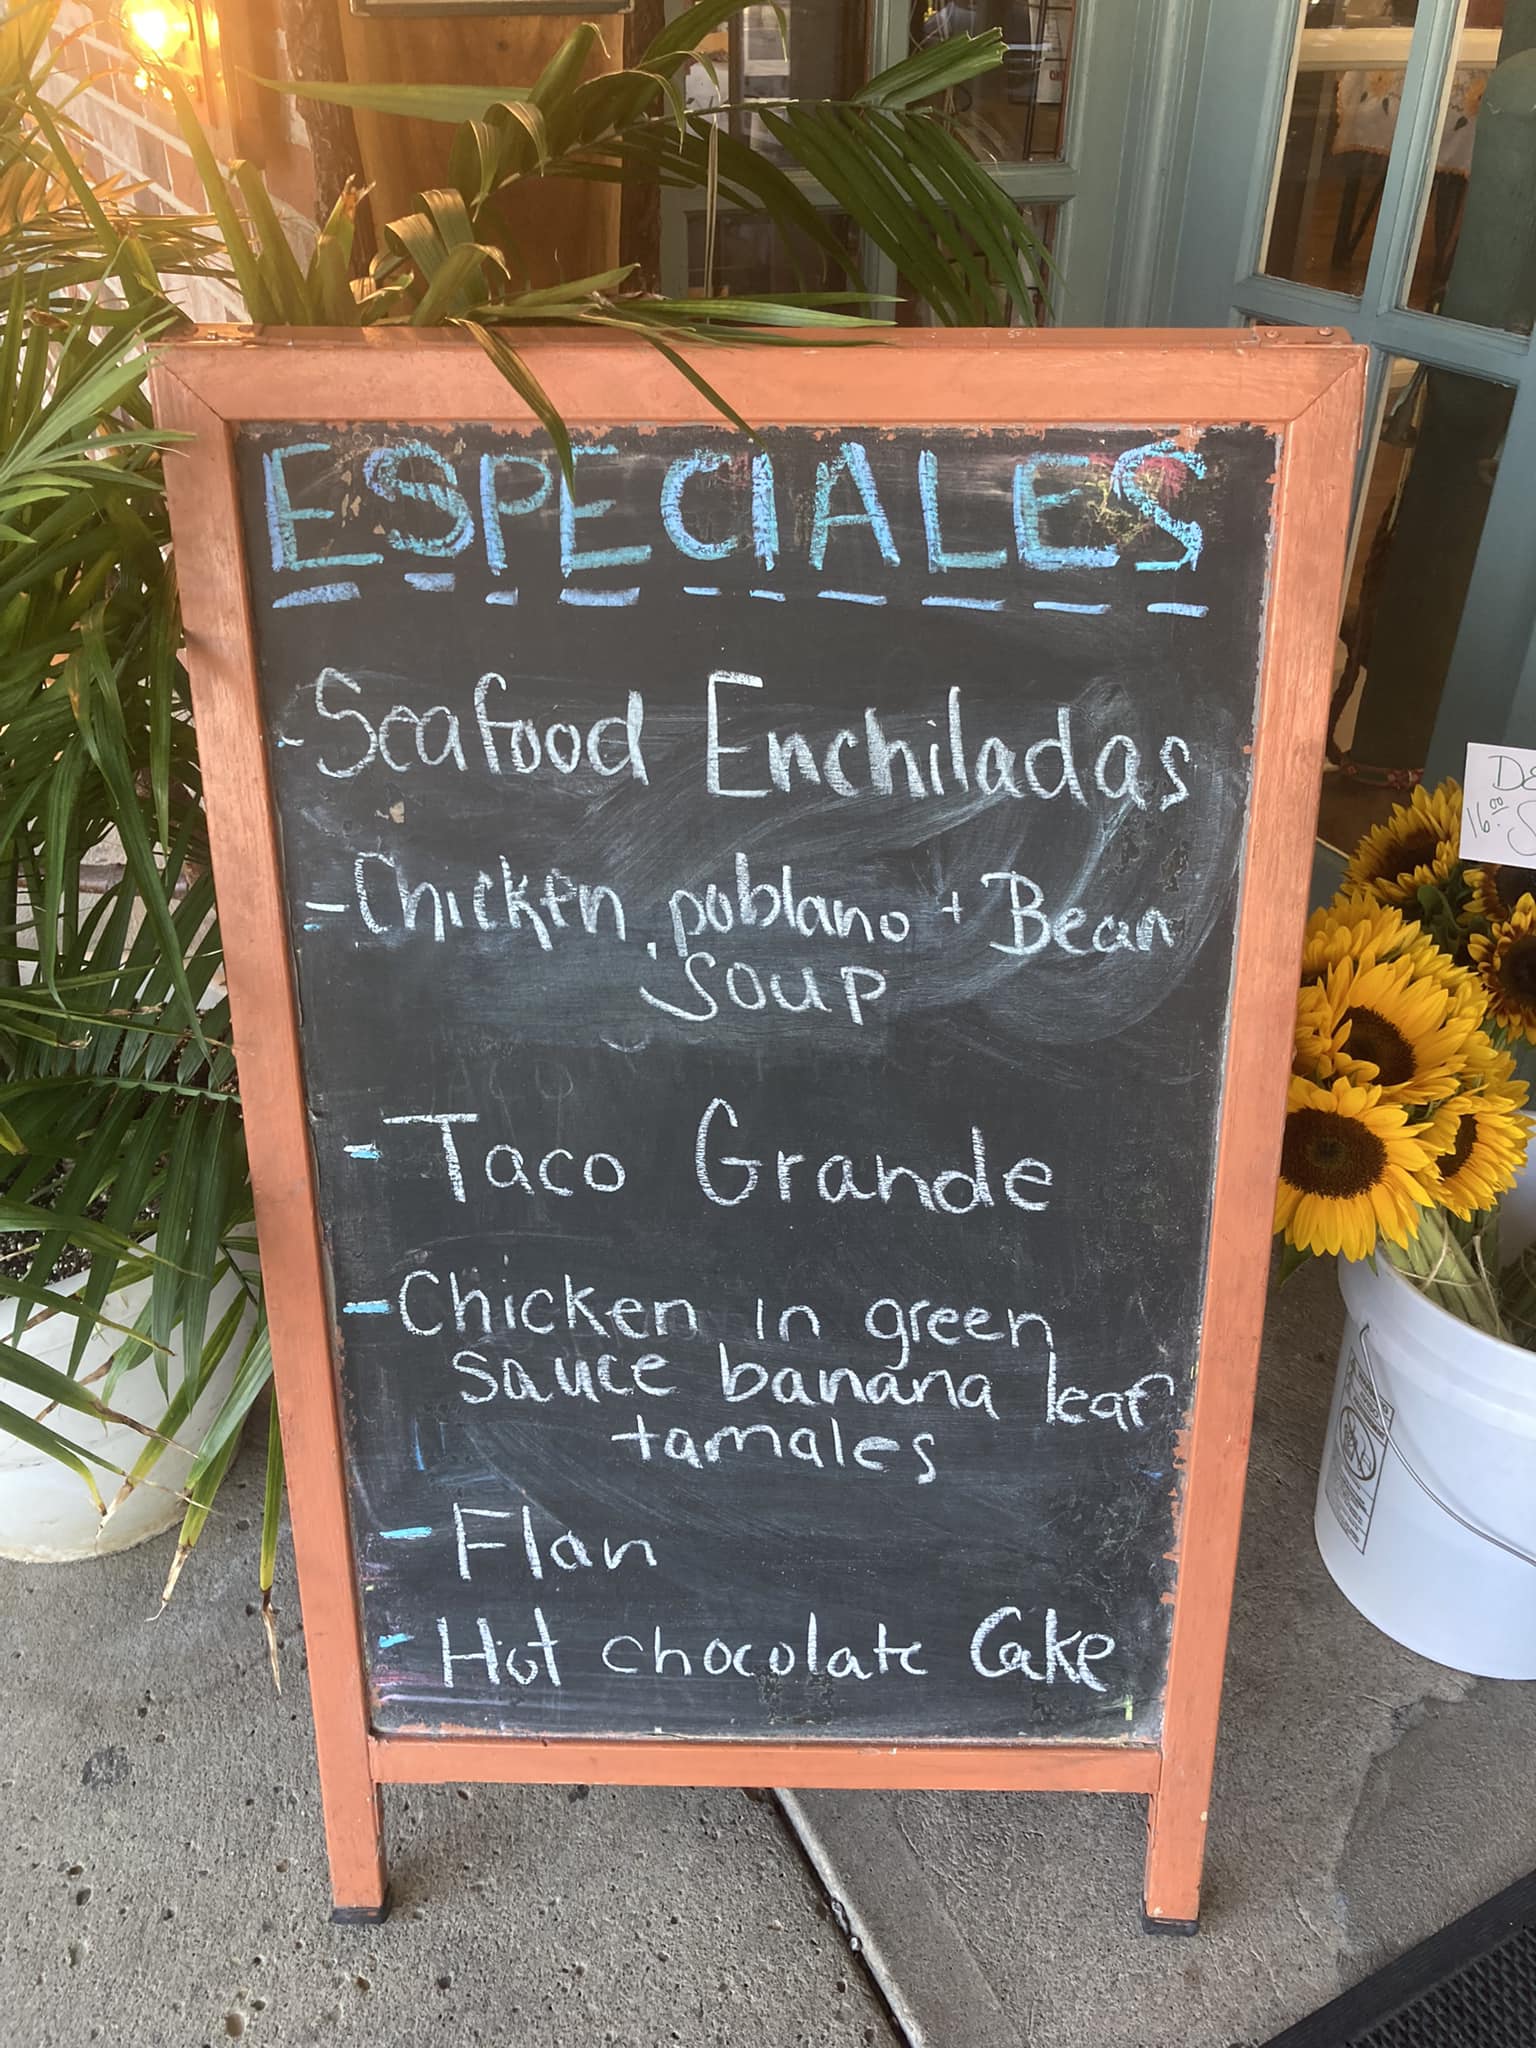 ESPECIALES
- Seafood Enchiladas
- Chicken, poblano + Bean
soup
- Taco Grande
- Chicken in green
sauce banana leaf
tamales
- Flan
- Hot chocolate Cake
16.00